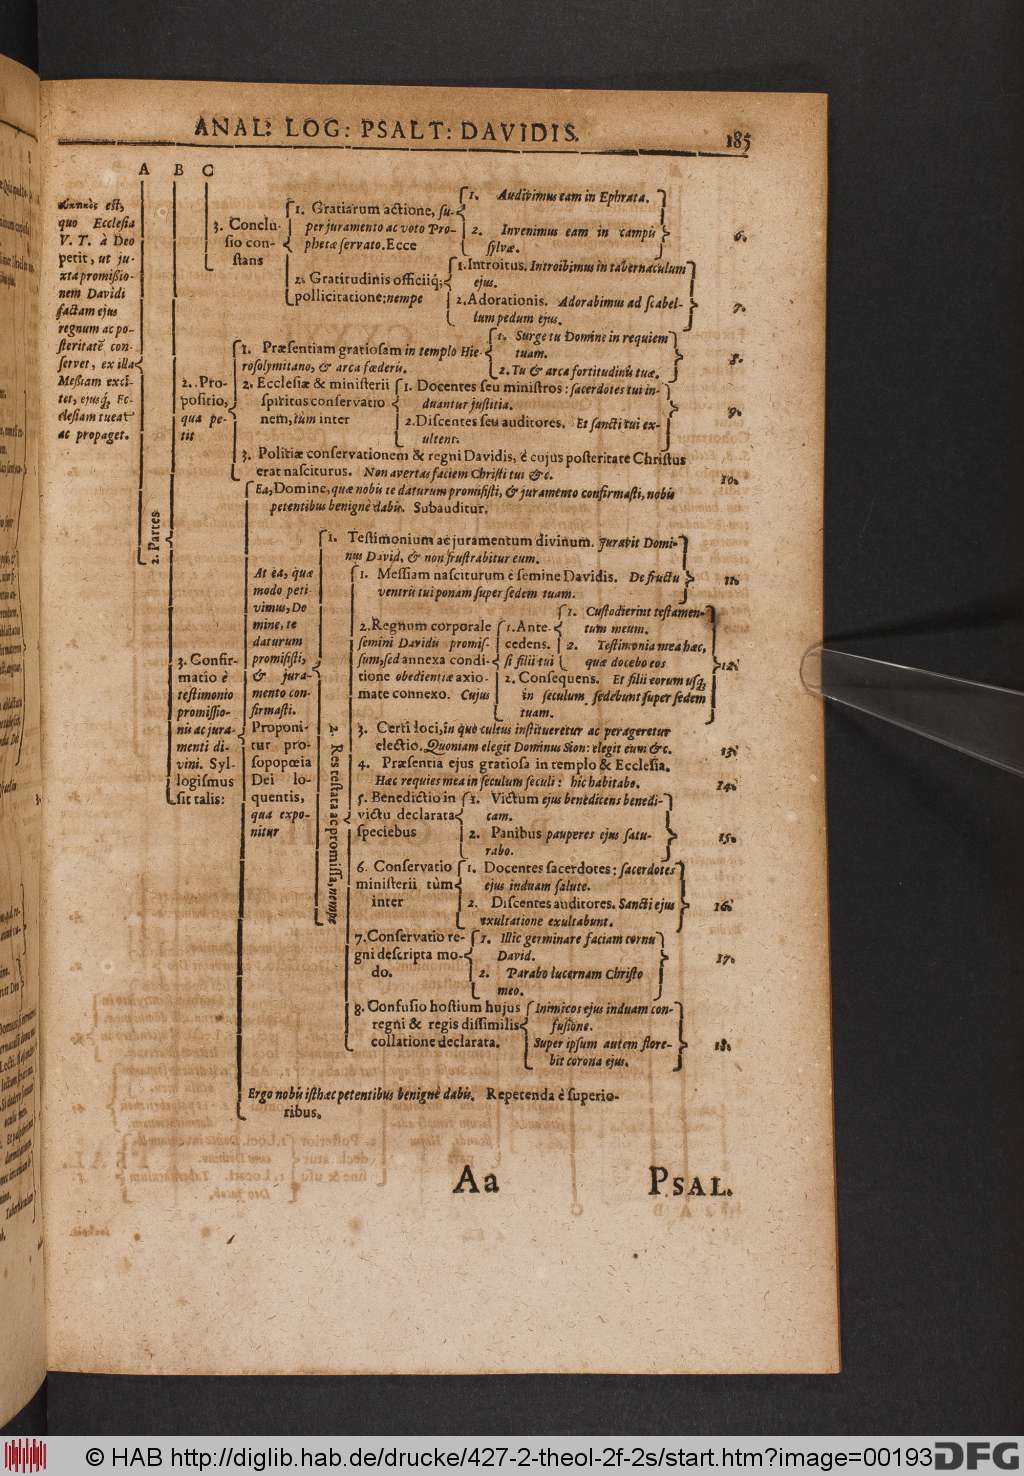 ANAL: LOG: PSALT: DAVIDIS.
185
A B C
est,
quo Ecclesia
V. T. à Deo
petit, ut ju-
xta promißio-
nem Davidi
factam ejus
regnum ac po-
steritatē con-
servet, ex illa
Meßiam exci-
tet, ejusq́, Ec-
clesiam tueat
ac propaget.
2. Partes
3. Conclu-
sio con-
stans
1. Gratiarum actione, su-
per juramento ac voto Pro-
phetæ servato. Ecce
1. Audivimus eam in Ephrata.
2. Invenimus eam in campis
sylvæ.
6.
2. Gratitudinis officiiq́;
pollicitatione; nempe
1. Introitus. Introibimus in tabernaculum
ejus.
2. Adorationis. Adorabimus ad scabel-
lum pedum ejus.
7.
2. Pro-
positio,
qua pe-
tit
1. Præsentiam gratiosam in templo Hie-
rosolymitano, & arca fœderis.
1. Surge tu Domine in requiem
tuam.
2. Tu & arca fortitudinis tuæ.
8.
2. Ecclesiæ & ministerii
spiritus conservatio
nem, tùm inter
1. Docentes seu ministros: sacerdotes tui in-
duantur justitia.
2. Discentes seu auditores. Et sancti tui ex-
ultent.
9.
3. Politiæ conservationem & regni Davidis, è cujus posteritate Christus
erat nasciturus. Non avertas faciem Christi tui &c.
10.
3. Confir-
matio è
testimonio
promissio-
nis ac jura-
menti di-
vini. Syl-
logismus
sit talis:
Ea, Domine, quæ nobis te daturum promisisti, & juramento confirmasti, nobis
petentibus benignè dabis. Subauditur.
At ea, quæ
modo peti
vimus, Do
mine, te
daturum
promisisti,
& jura-
mento con-
firmasti.
Proponi-
tur pro-
sopopœia
Dei lo-
quentis,
qua expo-
nitur
1. Testimonium ac juramentum divinum. Juravit Domi-
nus David, & non frustrabitur eum.
2. Res testata ac promissa, nempe
1. Messiam nasciturum è semine Davidis. De fructu
ventris tui ponam super sedem tuam.
11.
2. Regnum corporale
semini Davidis promis-
sum, sed annexa condi-
tione obedientiæ axio-
mate connexo. Cujus
1. Ante-
cedens.
si filii tui
1. Custodierint testamen-
tum meum.
2. Testimonia mea hæc,
quæ docebo eos
2. Consequens. Et filii eorum usq́,
in seculum sedebunt super sedem
tuam.
12.
3. Certi loci, in quo cultus institueretur ac perageretur
electio. Quoniam elegit Dominus Sion: elegit eum &c.
13.
4. Præsentia ejus gratiosa in templo & Ecclesia.
Hæc requies mea in seculum seculi: hic habitabo.
14.
5. Benedictio in
victu declarata
speciebus
1. Victum ejus benedicens benedi-
cam.
2. Panibus pauperes ejus satu-
rabo.
15.
6. Conservatio
ministerii tùm
inter
1. Docentes sacerdotes: sacerdotes
ejus induam salute.
2. Discentes auditores. Sancti ejus
exultatione exultabunt.
16.
7. Conservatio re-
gni descripta mo-
do.
1. Illic germinare faciam cornu
David.
2. Parabo lucernam Christo
meo.
17.
8. Confusio hostium hujus
regni & regis dissimilis
collatione declarata.
Inimicos ejus induam con-
fusione.
Super ipsum autem flore-
bit corona ejus.
18.
Ergo nobis isthæc petentibus benignè dabis. Repetenda è superio-
ribus.
Aa
PSAL.
© HAB http://diglib.hab.de/drucke/427-2-theol-2f-2s/start.htm?image=00193
DFG